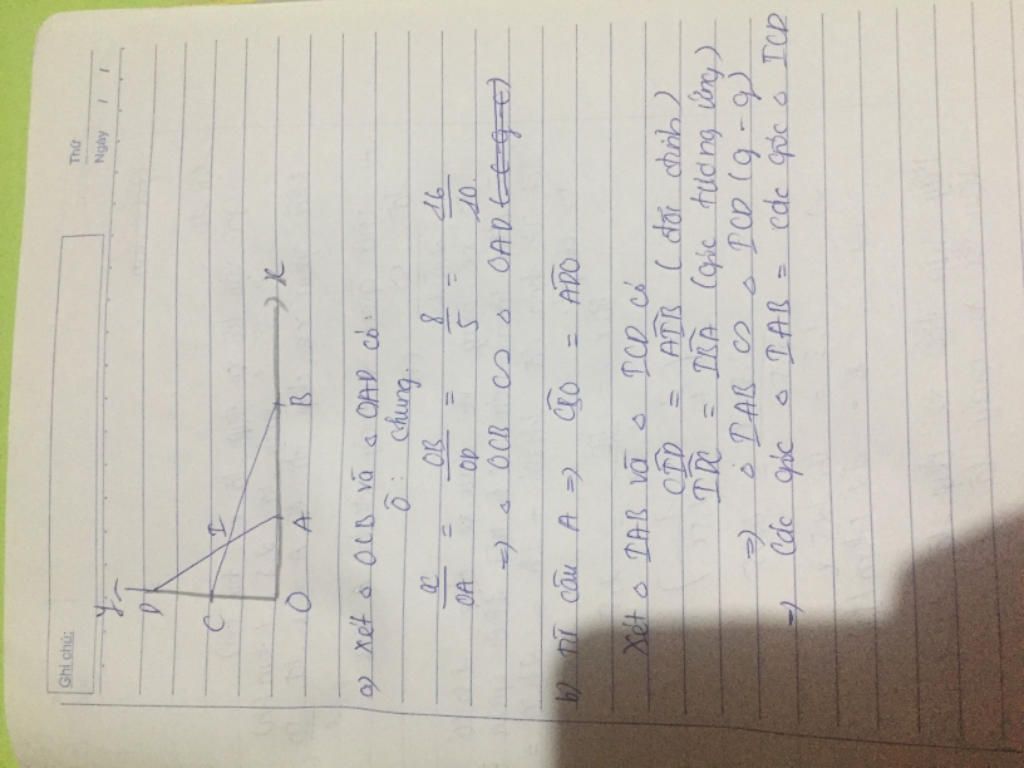 Ghi chú:
Thứ
Ngày / /
y
D
C
I
O A B x
a) Xét △ OCB và △ OAD có:
Ô: chung
OC/OA = OB/OD = 8/5 = 16/10
=> △ OCB ∽ △ OAD (c-g-c)
b) Từ câu A => CBO = ADO
Xét △ IAB và △ ICD có
CID = AIB (đối đỉnh)
IDC = IBA (góc tương ứng)
=> △ IAB ∽ △ ICD (g-g)
=> Các góc △ IAB = các góc △ ICD